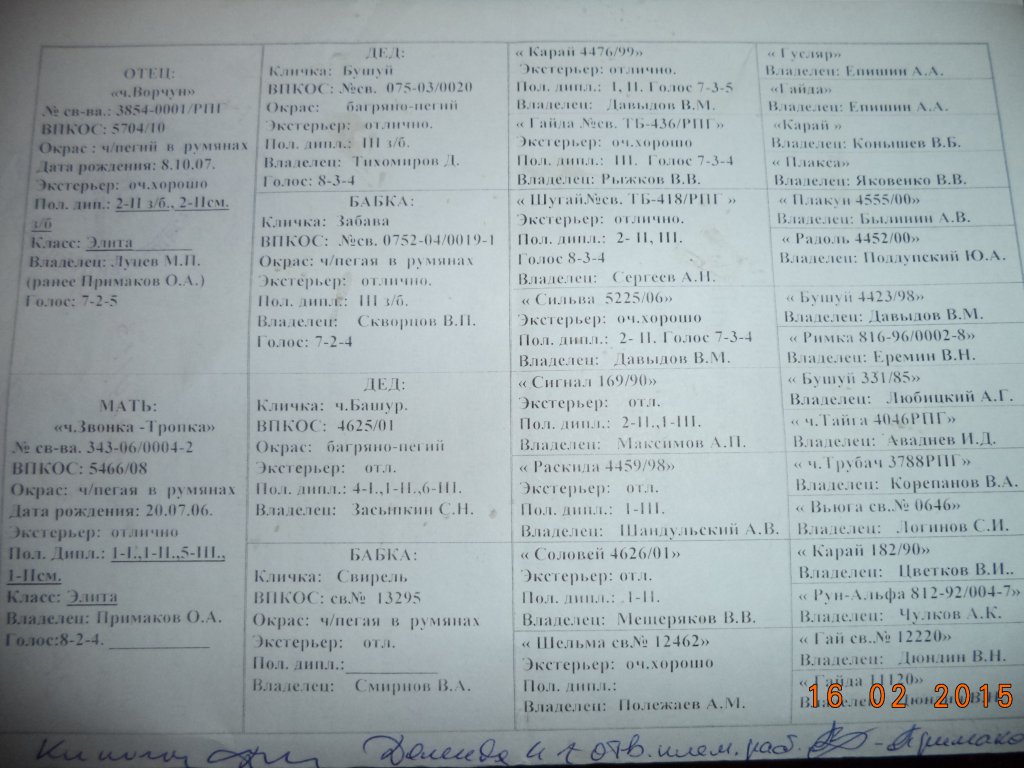 ОТЕЦ:
«ч.Ворчун»
№ св-ва.: 3854-0001/РПГ
ВПКОС: 5704/10
Окрас : ч/пегий в румянах
Дата рождения: 8.10.07.
Экстерьер: оч.хорошо
Пол. дип.: 2-II з/б., 2-IIсм.
з/б
Класс: Элита
Владелец: Лунев М.П.
(ранее Примаков О.А.)
Голос: 7-2-5
МАТЬ:
«ч.Звонка -Тропка»
№ св-ва. 343-06/0004-2
ВПКОС: 5466/08
Окрас: ч/пегая в румянах
Дата рождения: 20.07.06.
Экстерьер: отлично
Пол. Дипл.: 1-I.,1-II.,5-III.,
1-IIсм.
Класс: Элита
Владелец: Примаков О.А.
Голос:8-2-4.
ДЕД:
Кличка: Бушуй
ВПКОС: №св. 075-03/0020
Окрас: багряно-пегий
Экстерьер: отлично.
Пол. дипл.: III з/б.
Владелец: Тихомиров Д.
Голос: 8-3-4
БАБКА:
Кличка: Забава
ВПКОС: №св. 0752-04/0019-1
Окрас: ч/пегая в румянах
Экстерьер: отлично.
Пол. дипл.: III з/б.
Владелец: Скворцов В.П.
Голос: 7-2-4
ДЕД:
Кличка: ч.Башур.
ВПКОС: 4625/01
Окрас: багряно-пегий
Экстерьер: отл.
Пол. дипл.: 4-I.,1-II.,6-III.
Владелец: Засыпкин С.Н.
БАБКА:
Кличка: Свирель
ВПКОС: св№ 13295
Окрас: ч/пегая в румянах
Экстерьер: отл.
Пол. дипл.:
Владелец: Смирнов В.А.
« Карай 4476/99»
Экстерьер: отлично.
Пол. дипл.: I, II. Голос 7-3-5
Владелец: Давыдов В.М.
« Гайда №св. ТБ-436/РПГ»
Экстерьер: отлично
Пол. дипл.: III. Голос 7-3-4
Владелец: Рыжков В.В.
« Шугай.№св. ТБ-418/РПГ »
Экстерьер: отлично.
Пол. дипл.: 2- II, III.
Голос 8-3-4
Владелец: Сергеев А.И.
« Сильва 5225/06»
Экстерьер: оч.хорошо
Пол. дипл.: 2- II. Голос 7-3-4
Владелец: Давыдов В.М.
« Сигнал 169/90»
Экстерьер: отл.
Пол. дипл.: 2-II.,1-III.
Владелец: Максимов А.П.
« Раскида 4459/98»
Экстерьер: отл.
Пол. дипл.: 1-III.
Владелец: Шандульский А.В.
« Соловей 4626/01»
Экстерьер: отл.
Пол. дипл.: 1-II.
Владелец: Мещеряков В.В.
« Шельма св№ 12462»
Экстерьер: оч.хорошо
Пол. дипл.:
Владелец: Полежаев А.М.
« Гусляр»
Владелец: Епишин А.А.
«Гайда»
Владелец: Епишин А.А.
«Карай »
Владелец: Конышев В.Б.
« Плакса»
Владелец: Яковенко В.В.
« Плакун 4555/00»
Владелец: Былинин А.В.
« Радоль 4452/00»
Владелец: Поддупский Ю.А.
« Бушуй 4423/98»
Владелец: Давыдов В.М.
« Римка 816-96/0002-8»
Владелец: Еремин В.Н.
« Бушуй 331/85»
Владелец: Любицкий А.Г.
« ч.Тайга 4046РПГ»
Владелец: Авадяев И.Д.
« ч.Трубач 3788РПГ»
Владелец: Корепанов В.А.
« Вьюга св.№ 0646»
Владелец: Логинов С.И.
« Карай 182/90»
Владелец: Цветков В.И..
« Рун-Альфа 812-92/004-7»
Владелец: Чулков А.К.
« Гай св.№ 12220»
Владелец: Дюндин В.Н.
« Гайда 11120»
Владелец: Дюндин В.Н.
16 02 2015
отв. плем. раб. - Примако